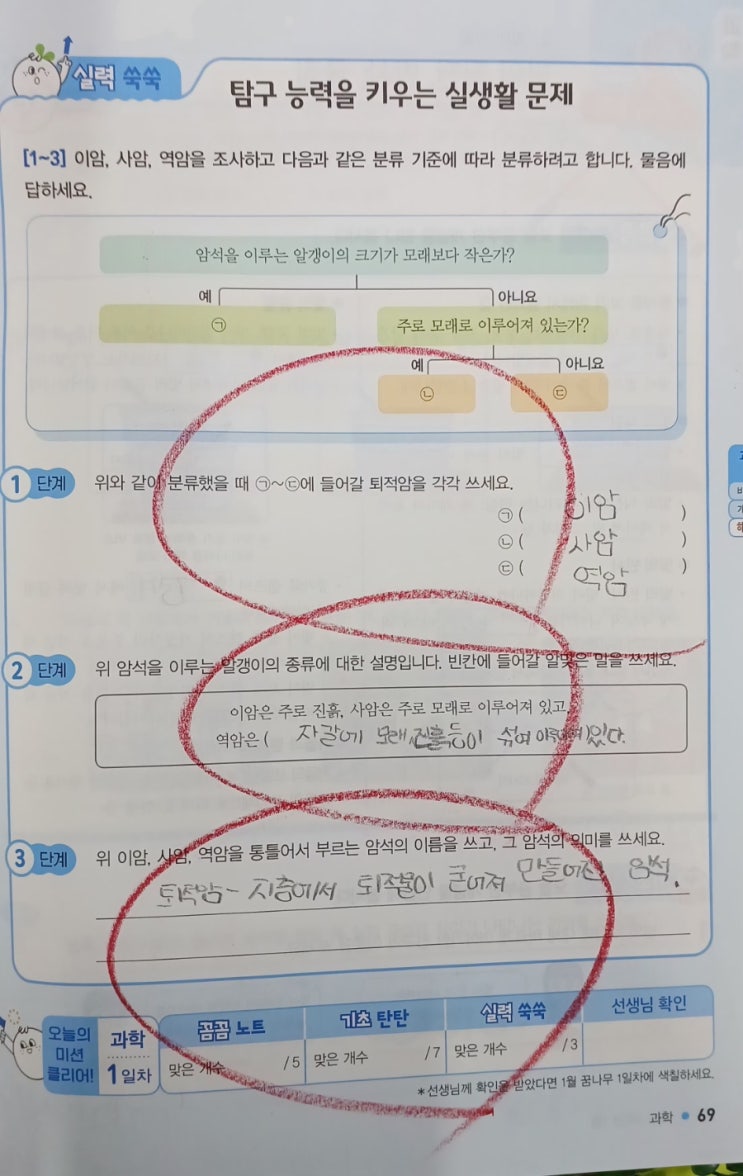 실력 쑥쑥
탐구 능력을 키우는 실생활 문제
[1~3] 이암, 사암, 역암을 조사하고 다음과 같은 분류 기준에 따라 분류하려고 합니다. 물음에
답하세요.
암석을 이루는 알갱이의 크기가 모래보다 작은가?
예 아니요
㉠ 주로 모래로 이루어져 있는가?
예 아니요
㉡ ㉢
1 단계 위와 같이 분류했을 때 ㉠~㉢에 들어갈 퇴적암을 각각 쓰세요.
㉠ ( 이암 )
㉡ ( 사암 )
㉢ ( 역암 )
2 단계 위 암석을 이루는 알갱이의 종류에 대한 설명입니다. 빈칸에 들어갈 알맞은 말을 쓰세요.
이암은 주로 진흙, 사암은 주로 모래로 이루어져 있고,
역암은 ( 자갈에 모래, 진흙등이 섞여 이루어져 )있다.
3 단계 위 이암, 사암, 역암을 통틀어서 부르는 암석의 이름을 쓰고, 그 암석의 의미를 쓰세요.
퇴적암 - 지층에서 퇴적물이 굳어져 만들어진 암석.
오늘의
미션
클리어!
과학
1일차
꼼꼼 노트 기초 탄탄 실력 쑥쑥 선생님 확인
맞은 개수 /5 맞은 개수 /7 맞은 개수 /3
*선생님께 확인을 받았다면 1월 꿈나무 1일차에 색칠하세요.
과학 • 69